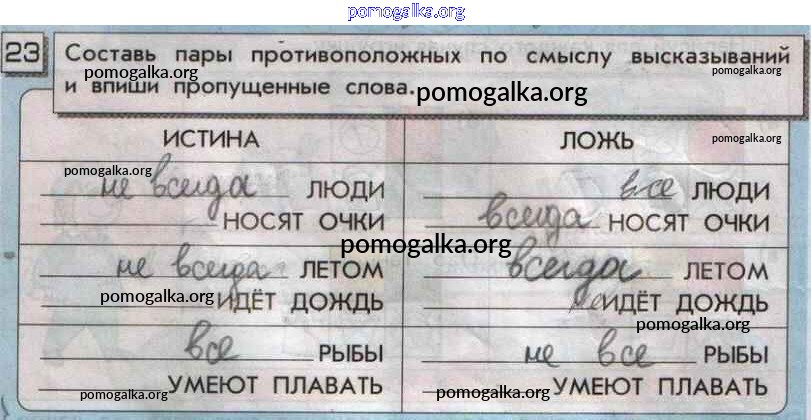 pomogalka.org
23 Составь пары противоположных по смыслу высказываний
pomogalka.org pomogalka.org
и впиши пропущенные слова. pomogalka.org
ИСТИНА ЛОЖЬ pomogalka.org
pomogalka.org
не всегда ЛЮДИ
НОСЯТ ОЧКИ
все ЛЮДИ
всегда НОСЯТ ОЧКИ
pomogalka.org
не всегда ЛЕТОМ
pomogalka.org ИДЁТ ДОЖДЬ
всегда ЛЕТОМ
ИДЁТ ДОЖДЬ
pomogalka.org
все РЫБЫ
pomogalka.org УМЕЮТ ПЛАВАТЬ
не все РЫБЫ
pomogalka.org УМЕЮТ ПЛАВАТЬ